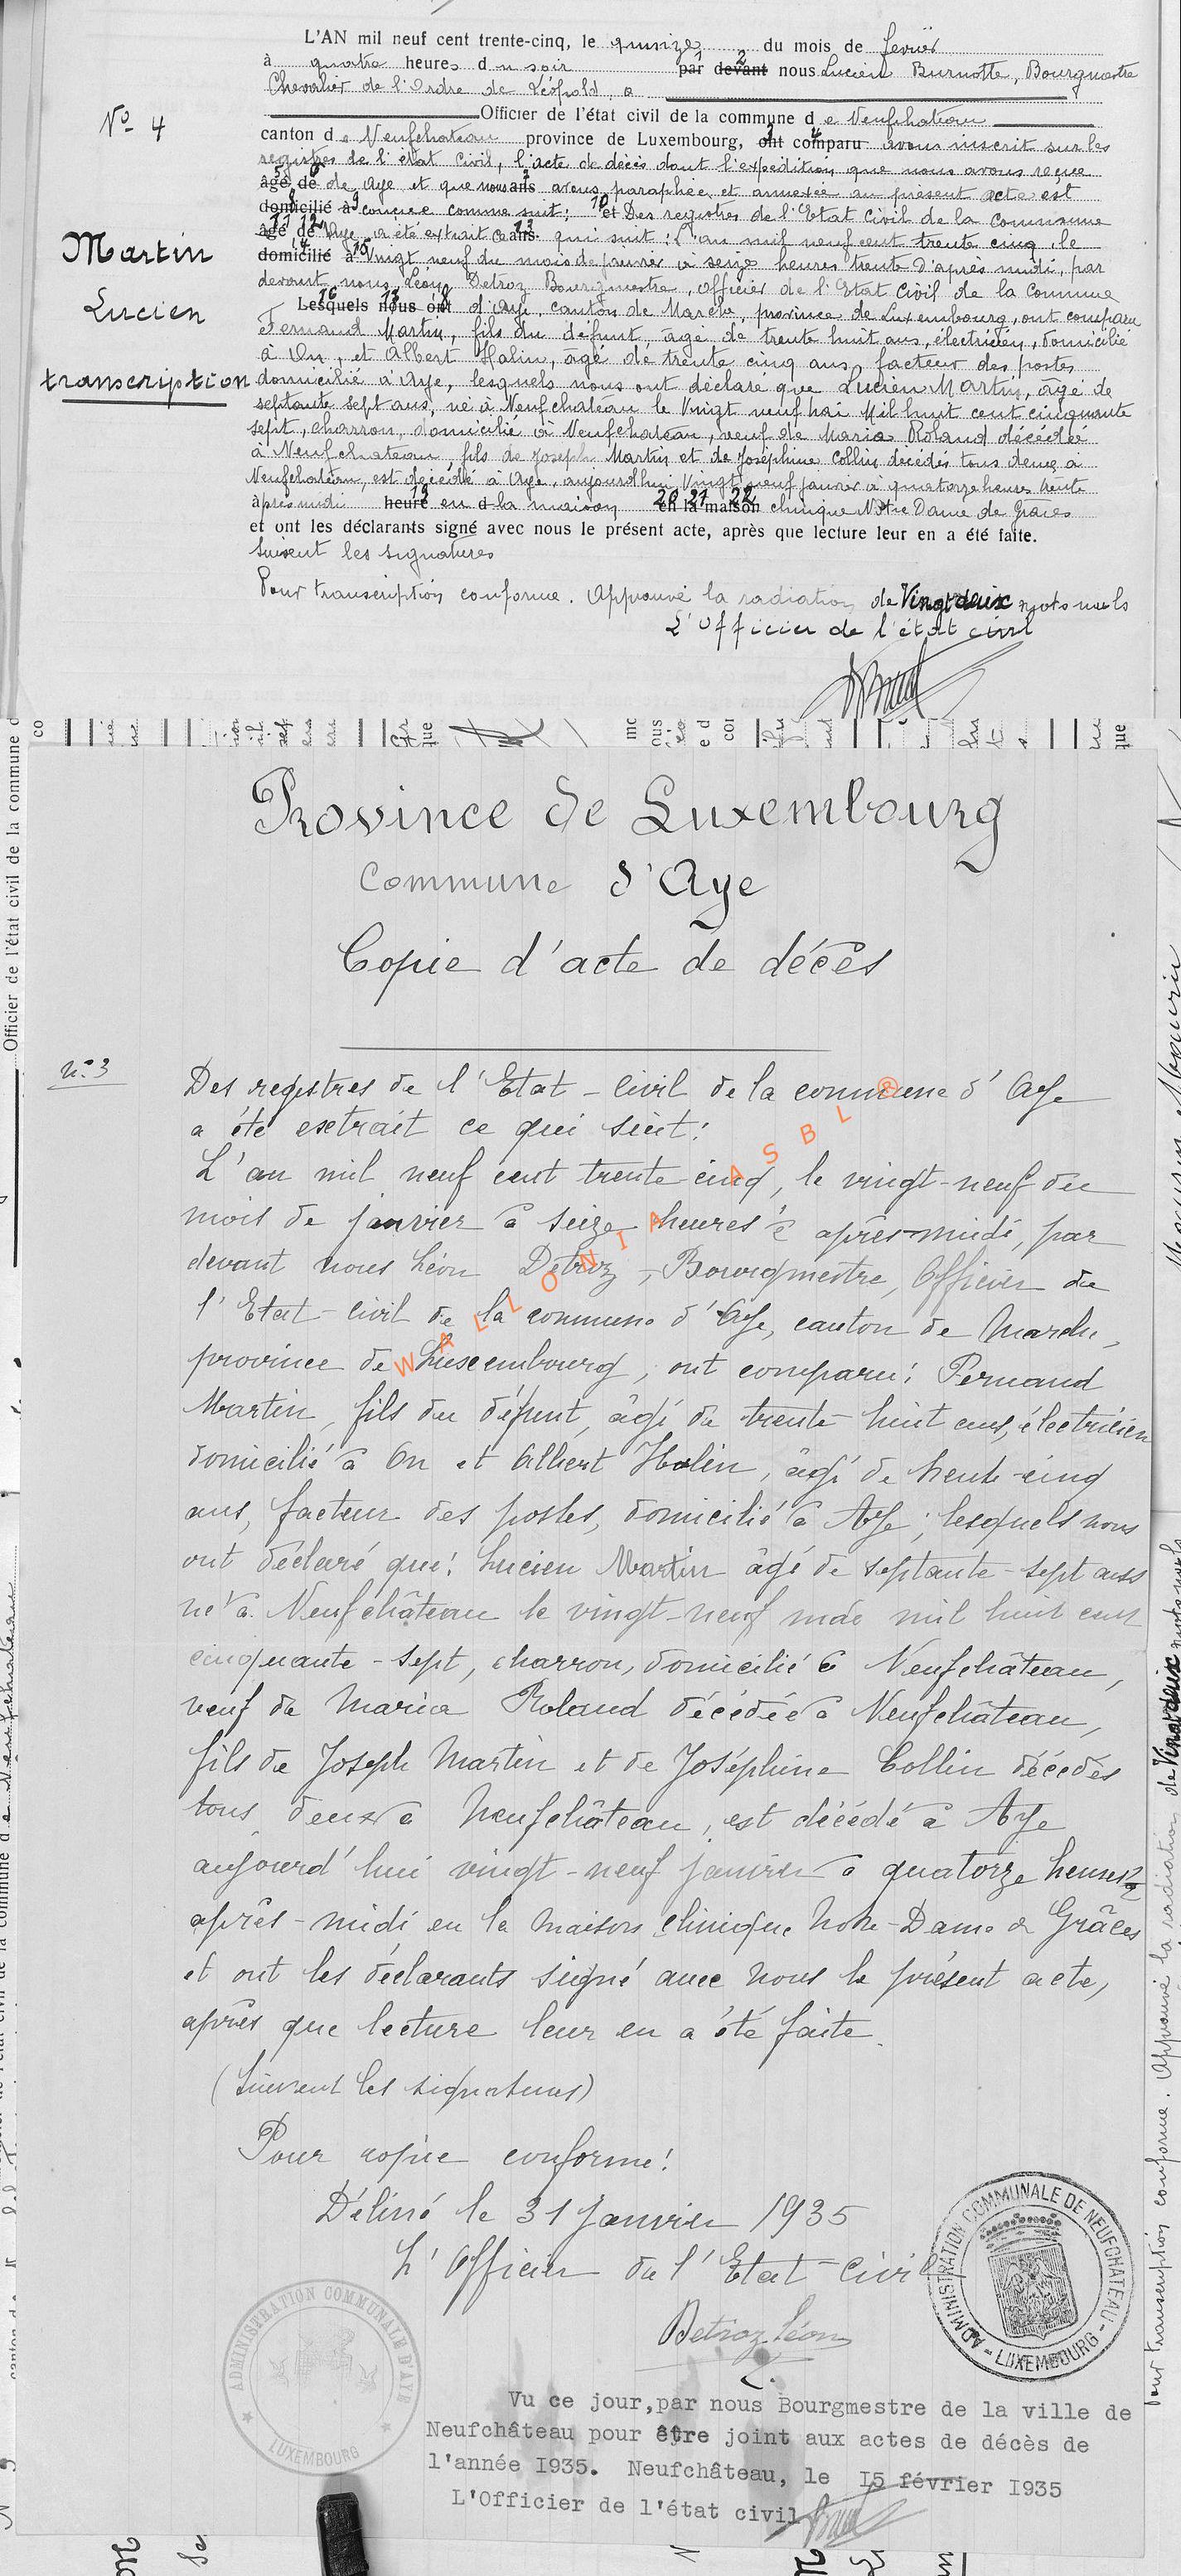 L'AN mil neuf cent trente-cinq, le quinze du mois de fevrier
à quatre heures du soir par devant nous Lucien Burnotte, Bourgmestre
Chevalier de l'Ordre de Léopold,
Officier de l'état civil de la commune de Neufchateau
No 4
canton de Neufchateau province de Luxembourg, ont comparu avons inscrit sur les
registres de l'état civil, l'acte de décès dont l'expédition que nous avons reçue
âgé de de Aye et que nous ans avons paraphée et annexée au présent acte est
domicilié à conçue comme suit: et Des registres de l'Etat Civil de la commune
âgé de d'Aye a été extrait ce ans qui suit: L'an mil neuf cent trente cinq, le
domicilié à Vingt neuf du mois de janvier à seize heures trente d'après midi, par
devant nous Léon Detroz Bourgmestre, Officier de l'Etat Civil de la commune
Lesquels nous ont d'Aye, canton de Marche, province de Luxembourg, ont comparu
Fernand Martin, fils du défunt, âgé de trente huit ans, électricien, domicilié
à On, et Albert Halin, âgé de trente cinq ans, facteur des postes
domicilié à Aye, lesquels nous ont déclaré que Lucien Martin, âgé de
septante sept ans, né à Neufchateau le Vingt neuf mai Mil huit cent cinquante
sept, charron, domicilié à Neufchateau, veuf de Maria Roland décédée
à Neufchateau, fils de Joseph Martin et de Joséphine Collin décédés tous deux à
Neufchateau, est décédé à Aye, aujourdhui Vingt neuf janvier à quatorze heures trente
après midi heure en d la maison en la maison clinique Notre Dame de Graces
et ont les déclarants signé avec nous le présent acte, après que lecture leur en a été faite.
Suivent les signatures
Pour transcription conforme. Approuvé la radiation de Vingt deux mots nuls
L'Officier de l'état civil
Martin
Lucien
transcription
Province de Luxembourg
Commune d'Aye
Copie d'acte de décès
n° 3
Des registres de l'Etat-Civil de la commune d'Aye
a été extrait ce qui suit:
L'an mil neuf cent trente-cinq, le vingt-neuf du
mois de janvier à seize heures après-midi, par
devant nous Léon Detroz, Bourgmestre, Officier de
l'Etat-civil de la commune d'Aye, canton de Marche,
province de Luxembourg, ont comparu: Fernand
Martin, fils du défunt, âgé de trente-huit ans, électricien
domicilié à On et Albert Halin, âgé de trente-cinq
ans, facteur des postes, domicilié à Aye; lesquels nous
ont déclaré que: Lucien Martin âgé de septante-sept ans
né à Neufchâteau le vingt-neuf mai mil huit cent
cinquante-sept, charron, domicilié à Neufchâteau,
veuf de Maria Roland décédée à Neufchâteau,
fils de Joseph Martin et de Joséphine Collin décédés
tous deux à Neufchâteau, est décédé à Aye
aujourd'hui vingt-neuf janvier à quatorze heures
après-midi en la maison clinique Notre-Dame de Grâces
et ont les déclarants signé avec nous le présent acte,
après que lecture leur en a été faite.
(Suivent les signatures)
Pour copie conforme:
Délivré le 31 Janvier 1935
L'Officier de l'Etat-Civil
Detroz Léon
ADMINISTRATION COMMUNALE DE NEUFCHATEAU - LUXEMBOURG -
ADMINISTRATION COMMUNALE D'AYE
LUXEMBOURG
Vu ce jour, par nous Bourgmestre de la ville de
Neufchâteau pour être joint aux actes de décès de
l'année 1935. Neufchâteau, le 15 février 1935
L'Officier de l'état civil
WALLONIA ASBL ®